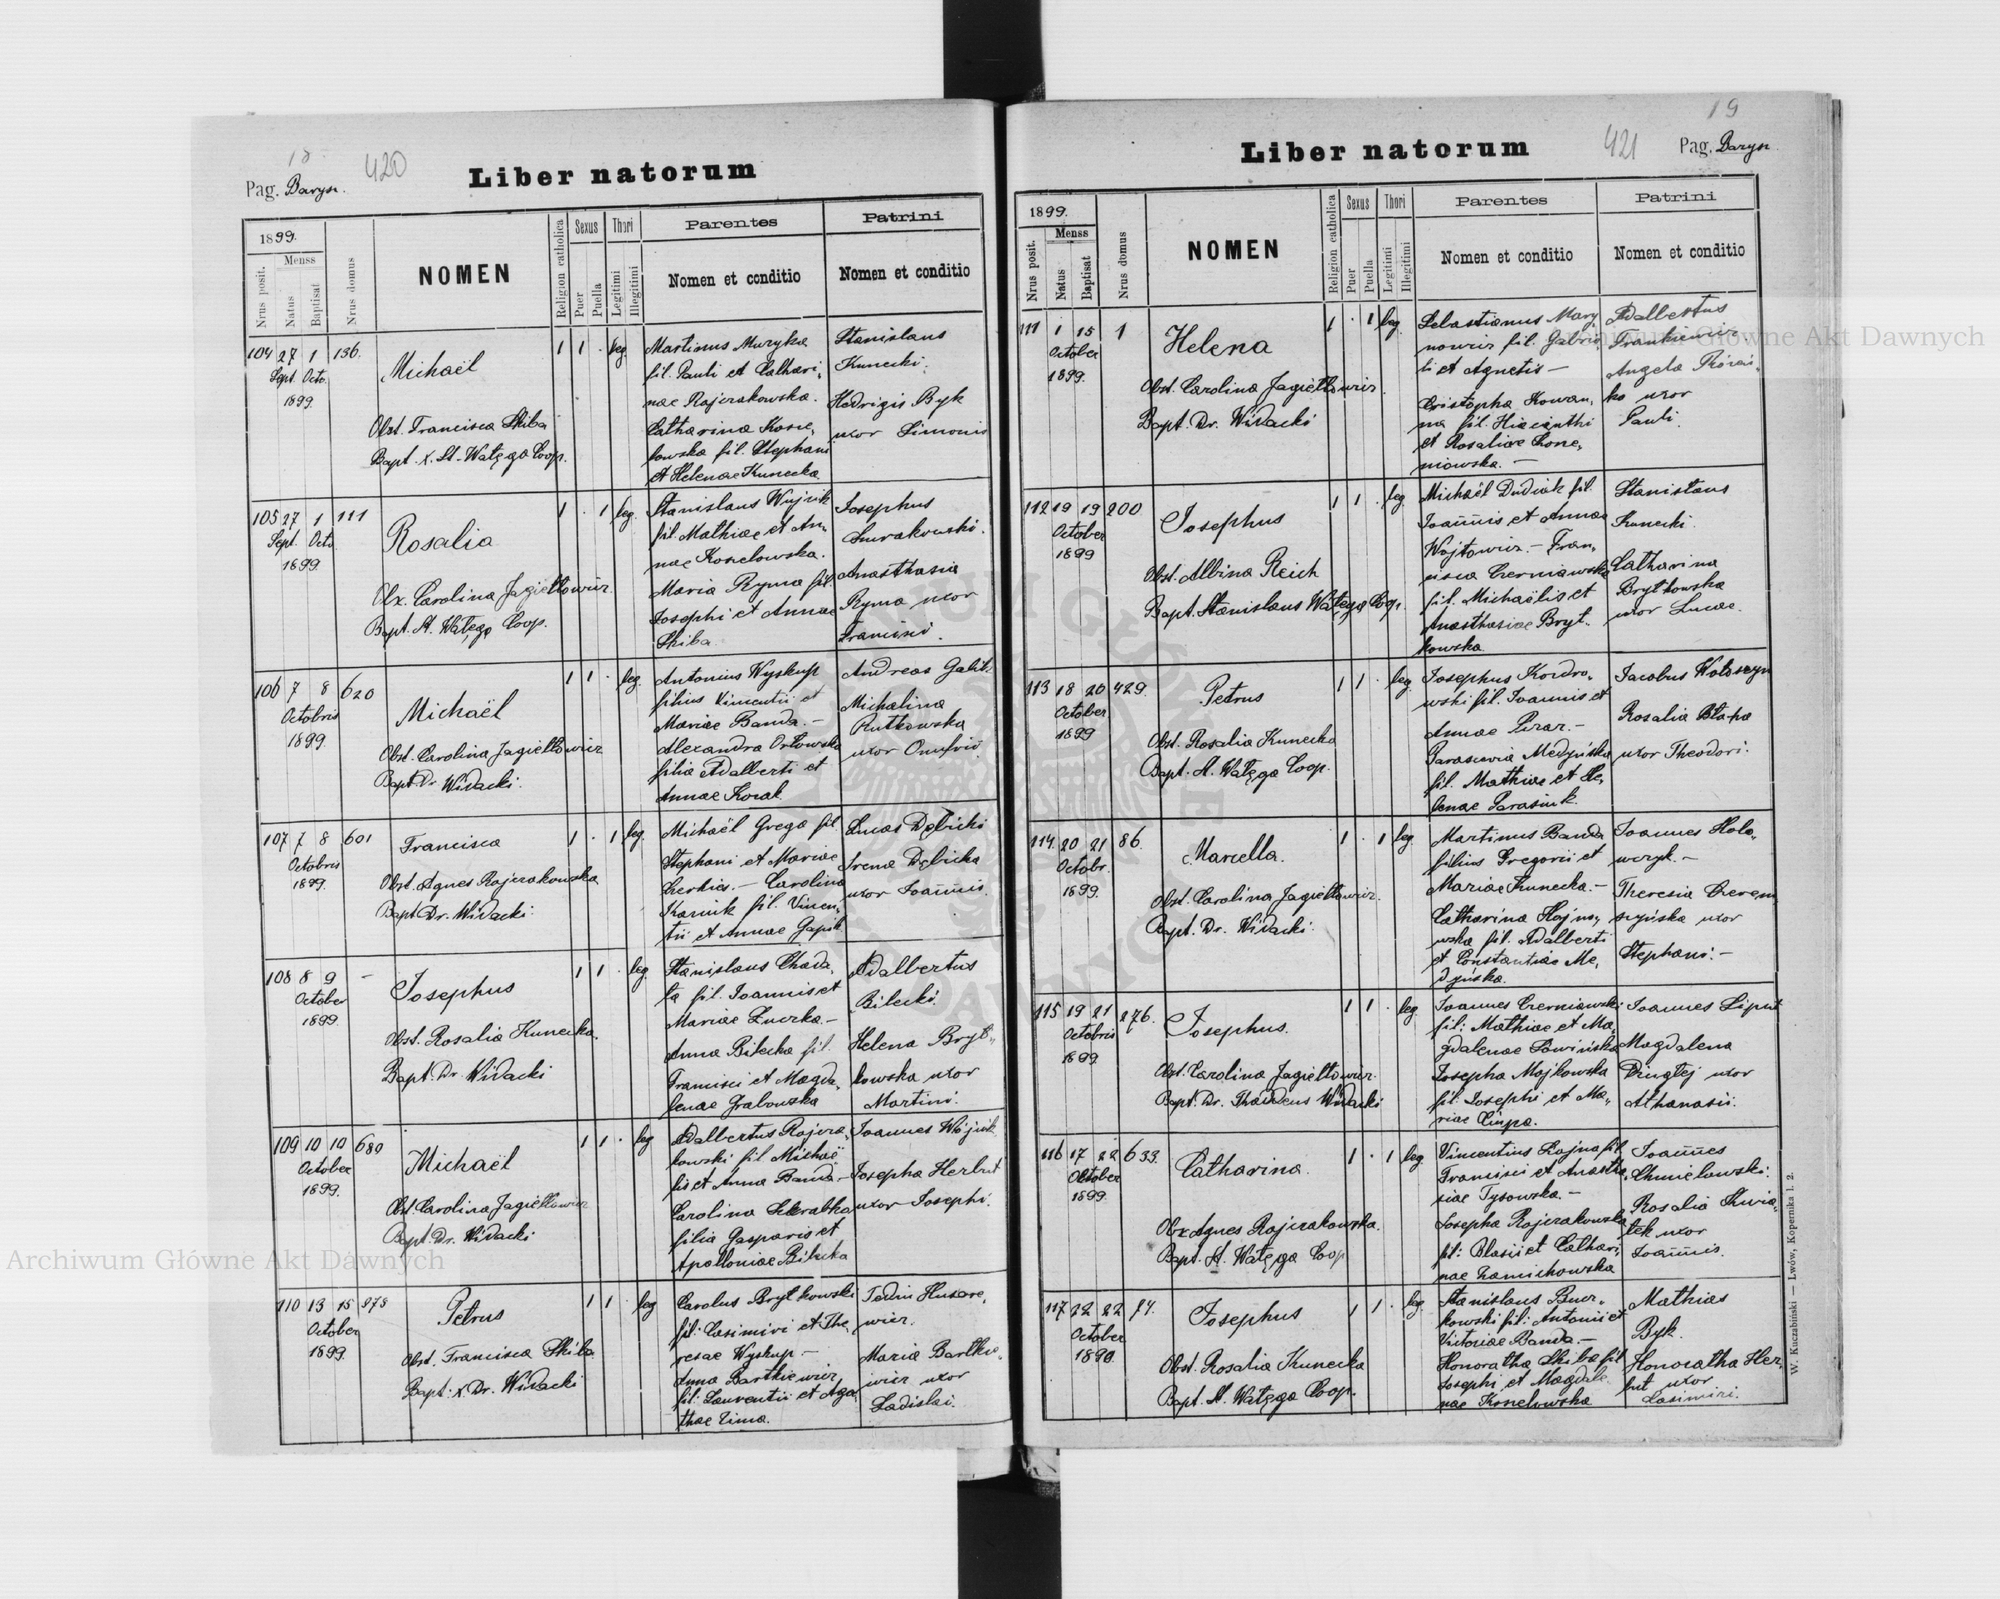 18.
420
Pag. Barysz.
Liber natorum
1899.
Nrus posit.
Menss
Natus
Baptisat
Nrus domus
NOMEN
Religion catholica
Sexus
Puer
Puella
Thori
Legitimi
Illegitimi
Parentes
Nomen et conditio
Patrini
Nomen et conditio
104 27 1 136.
Sept. Octo.
1899.
Michaël
Obst. Francisca Skiba
Bapt. x. St. Watęga Coop.
1 1 . leg.
Martinus Muryka
fil. Pauli et Cathari-
nae Rajczakowska.
Catharina Kosce-
lowska fil. Stephani
et Helenae Kunecka
Stanislaus
Kunecki.
Hedvigis Byk
uxor Simonis
105 27 1 111
Sept. Octo.
1899.
Rosalia
Obx. Carolina Jagiełłowicz
Bapt. St. Watęga Coop.
1 . 1 leg.
Stanislaus Wujcik
fil. Mathiae et An-
nae Koncelowska.
Maria Ryma fil.
Josephi et Annae
Skiba
Josephus
Smrakowski.
Anasthasia
Ryma uxor
Francisci.
106 7 8 620
Octobris
1899.
Michaël
Obst. Carolina Jagiełłowicz
Bapt. Dr. Widacki.
1 1 . leg.
Antonius Wyskup
filius Vincentii et
Mariae Banda. —
Alexandra Orłowska
filia Adalberti et
Annae Kozak.
Andreas Galik
Michalina
Rutkowska
uxor Onufrii.
107 7 8 601
Octobris
1899.
Francisca
Obst. Agnes Rajczakowska
Bapt. Dr. Widacki.
1 . 1 leg.
Michaël Grega fil.
Stephani et Mariae
Czerkies. — Carolina
Karnik fil. Vincen-
tii et Annae Gapik
Lucas Dębicki
Irena Dębicka
uxor Joannis.
108 8 9 —
October
1899.
Josephus
Obst. Rosalia Kunecka.
Bapt. Dr. Widacki
1 1 . leg.
Stanislaus Chada-
ła fil. Joannis et
Mariae Łuczka. —
Anna Bilecka fil.
Francisci et Magda-
lenae Grabowska
Adalbertus
Bilecki.
Helena Bryt-
kowska uxor
Martini.
109 10 10 680
October
1899.
Michaël
Obst. Carolina Jagiełłowicz
Bapt. Dr. Widacki
1 1 . leg
Adalbertus Rajcza-
kowski fil. Michaë
lis et Anna Banda. —
Carolina Skrabka
filia Gasparis et
Apolloniae Bilecka
Joannes Wójcik.
Josepha Herbut
uxor Josephi.
110 13 15 973
October
1899.
Petrus
Obst. Francisca Skiba
Bapt. x Dr. Widacki
1 1 . leg
Carolus Brytkowski
fil: Casimiri et The-
resae Wyskup —
Anna Bartkiewicz
fil: Laurentii et Aga-
thae Zima.
Husare-
wicz.
Maria Bartkie-
wicz uxor
Ladislai.
19
421
Pag. Barysz.
Liber natorum
1899.
Nrus posit.
Menss
Natus
Baptisat
Nrus domus
NOMEN
Religion catholica
Sexus
Puer
Puella
Thori
Legitimi
Illegitimi
Parentes
Nomen et conditio
Patrini
Nomen et conditio
111 1 15 1
October
1899.
Helena
Obst. Carolina Jagiełłowicz.
Bapt. Dr. Widacki
1 . 1 leg.
Sebastianus Mary-
nowicz fil. Gabrie-
li et Agnetis —
Cristopha Kowan-
na fil. Hiacinthi
et Rosaliae
niowska. —
Adalbertus
Frankiewicz.
Angela
ko uxor
Pauli.
112 19 19 200
October
1899
Josephus
Obst. Albina Reich
Bapt. Stanislaus Watęga Coop.
1 1 . leg.
Michaël Dudiak fil.
Joannis et Annae
Wojtowicz. — Fran-
cisca Czerniawska
fil. Michaëlis et
Anasthasiae Bryt-
kowska
Stanislaus
Kunecki.
Catharina
Brytkowska
uxor Lucae.
113 18 20 429.
October
1899
Petrus
Obst. Rosalia Kunecka
Bapt. St. Watęga Coop.
1 1 . leg.
Josephus Kordro-
wski fil. Joannis et
Annae Pirar. —
Parascevia Medyńska
fil. Mathiae et He-
lenae Parasiuk.
Jacobus Wołoszyn
Rosalia Błapa
uxor Theodori.
114. 20 21 86.
Octobr.
1899.
Marcella.
Obst. Carolina Jagiełłowicz.
Bapt. Dr. Widacki.
1 . 1 leg.
Martinus Banda
filius Gregorii et
Mariae Kunecka. —
Catharina Hajno-
wska fil. Adalberti
et Constantiae Me-
dyńska.
Joannes Holo-
wczyk. —
Theresia Cherem
szyńska uxor
Stephani. —
115 19 21 276.
Octobris
1899
Josephus.
Obst. Carolina Jagiełłowicz.
Bapt. Dr. Thaddeus Widacki
1 1 . leg.
Joannes Czerniawski
fil: Mathiae et Ma-
gdalenae Sawińska
Josepha Majkowska
fil: Josephi et Ma-
riae Ciupa.
Joannes Lipnit
Magdalena
Dzugtej uxor
Athanasii.
116 17 22 633.
October
1899.
Catharina.
Obx Agnes Rajczakowska.
Bapt. St. Watęga Coop
1 . 1 leg.
Vincentius Rajna fil.
Francisci et Anasta-
siae Tysowska. —
Josepha Rajczakowska
fil: Blasii et Cathari-
nae Zamichowska
Joannes
Chmielowski.
Rosalia Kwia-
tek uxor
Joannis.
117 22 22 74.
October
1899.
Josephus
Obst. Rosalia Kunecka
Bapt. St. Watęga Coop.
1 1 . leg.
Stanislaus Bucz-
kowski fil: Antonii et
Victoriae Banda. —
Honoratha Skiba fil
Josephi et Magdale-
nae Koncelowska
Mathias
Byk.
Honoratha Her-
but uxor
Casimiri.
W. Kuczabiński. — Lwów, Kopernika l. 2.
Archiwum Główne Akt Dawnych
Archiwum Główne Akt Dawnych